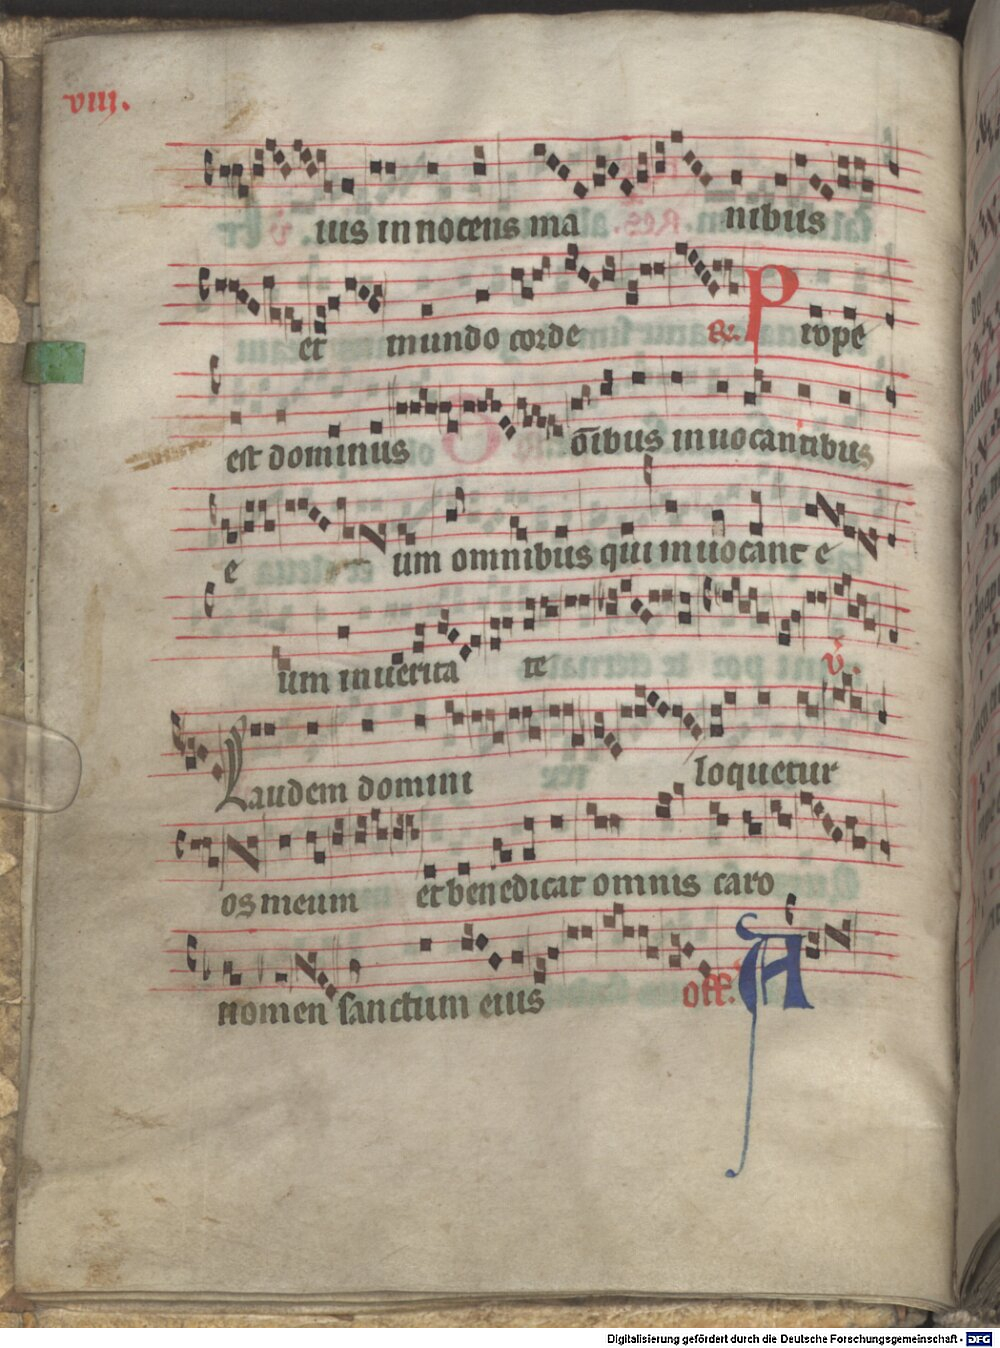 viij.
ius innocens ma nibus
et mundo corde R. Prope
est dominus om̄ibus inuocantibus
e um omnibus qui inuocant e
um in uerita te v.
Laudem domini loquetur
os meum et benedicat omnis caro
nomen sanctum eius off. A
Digitalisierung gefördert durch die Deutsche Forschungsgemeinschaft - DFG